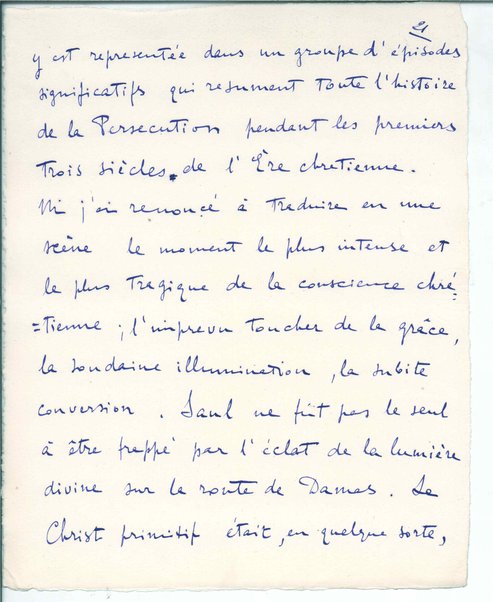 21
y est representée dans un groupe d'épisodes
significatifs qui resument toute l'histoire
de la Persecution pendant les premiers
trois siècles de l'Ère chretienne.
Ni j'ai renoncé à traduire en une
scène le moment le plus intense et
le plus tragique de la conscience chré=
=tienne ; l'imprevu toucher de la grâce,
la soudaine illumination, la subite
conversion. Saul ne fût pas le seul
à être frappé par l'éclat de la lumière
divine sur la route de Damas. Le
Christ primitif était, en quelque sorte,